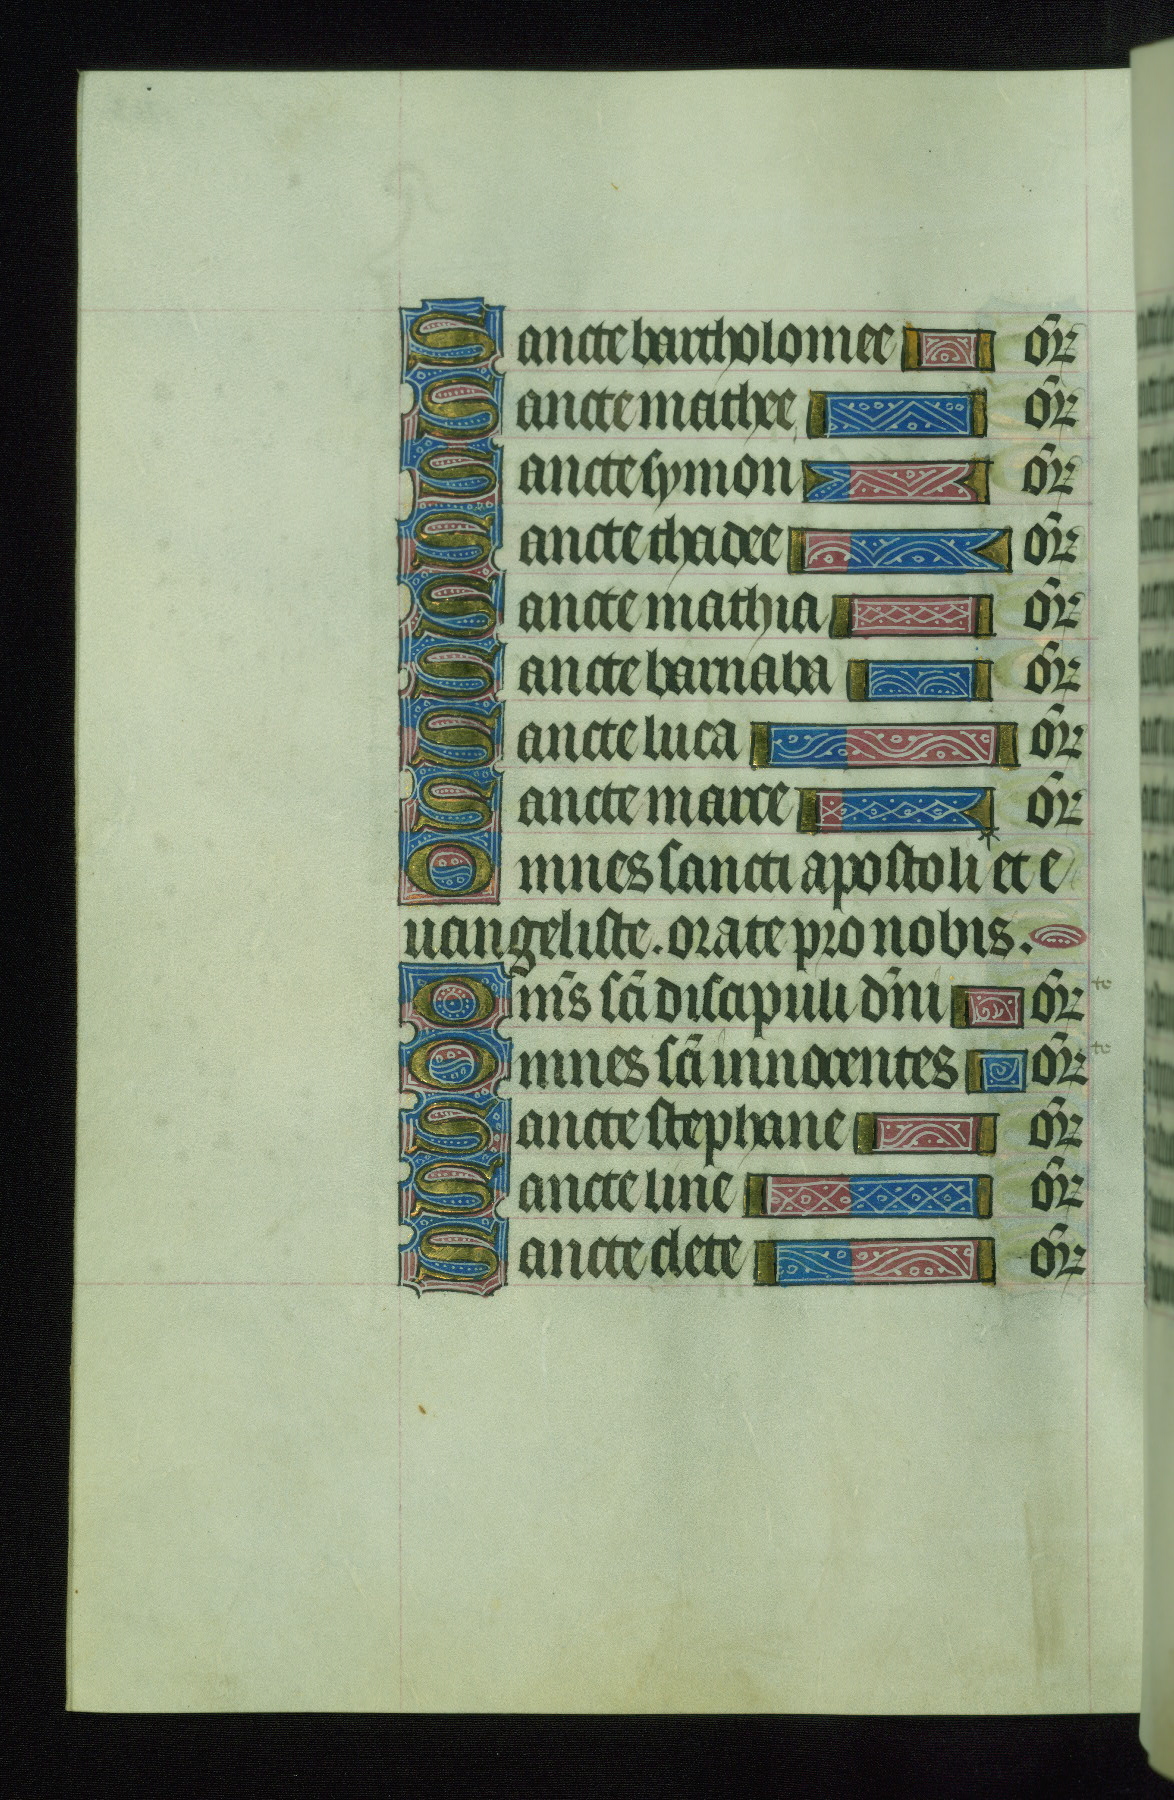 Sancte bartholomee or̄
Sancte mathee or̄
Sancte symon or̄
Sancte thadee or̄
Sancte mathia or̄
Sancte barnaba or̄
Sancte luca or̄
Sancte marce or̄
Omnes sancti apostoli et e
uangeliste. orate pro nobis.
Om̄s sc̄i discipuli dn̄i or̄ te
Omnes sc̄i innocentes or̄ te
Sancte stephane or̄
Sancte line or̄
Sancte clete or̄